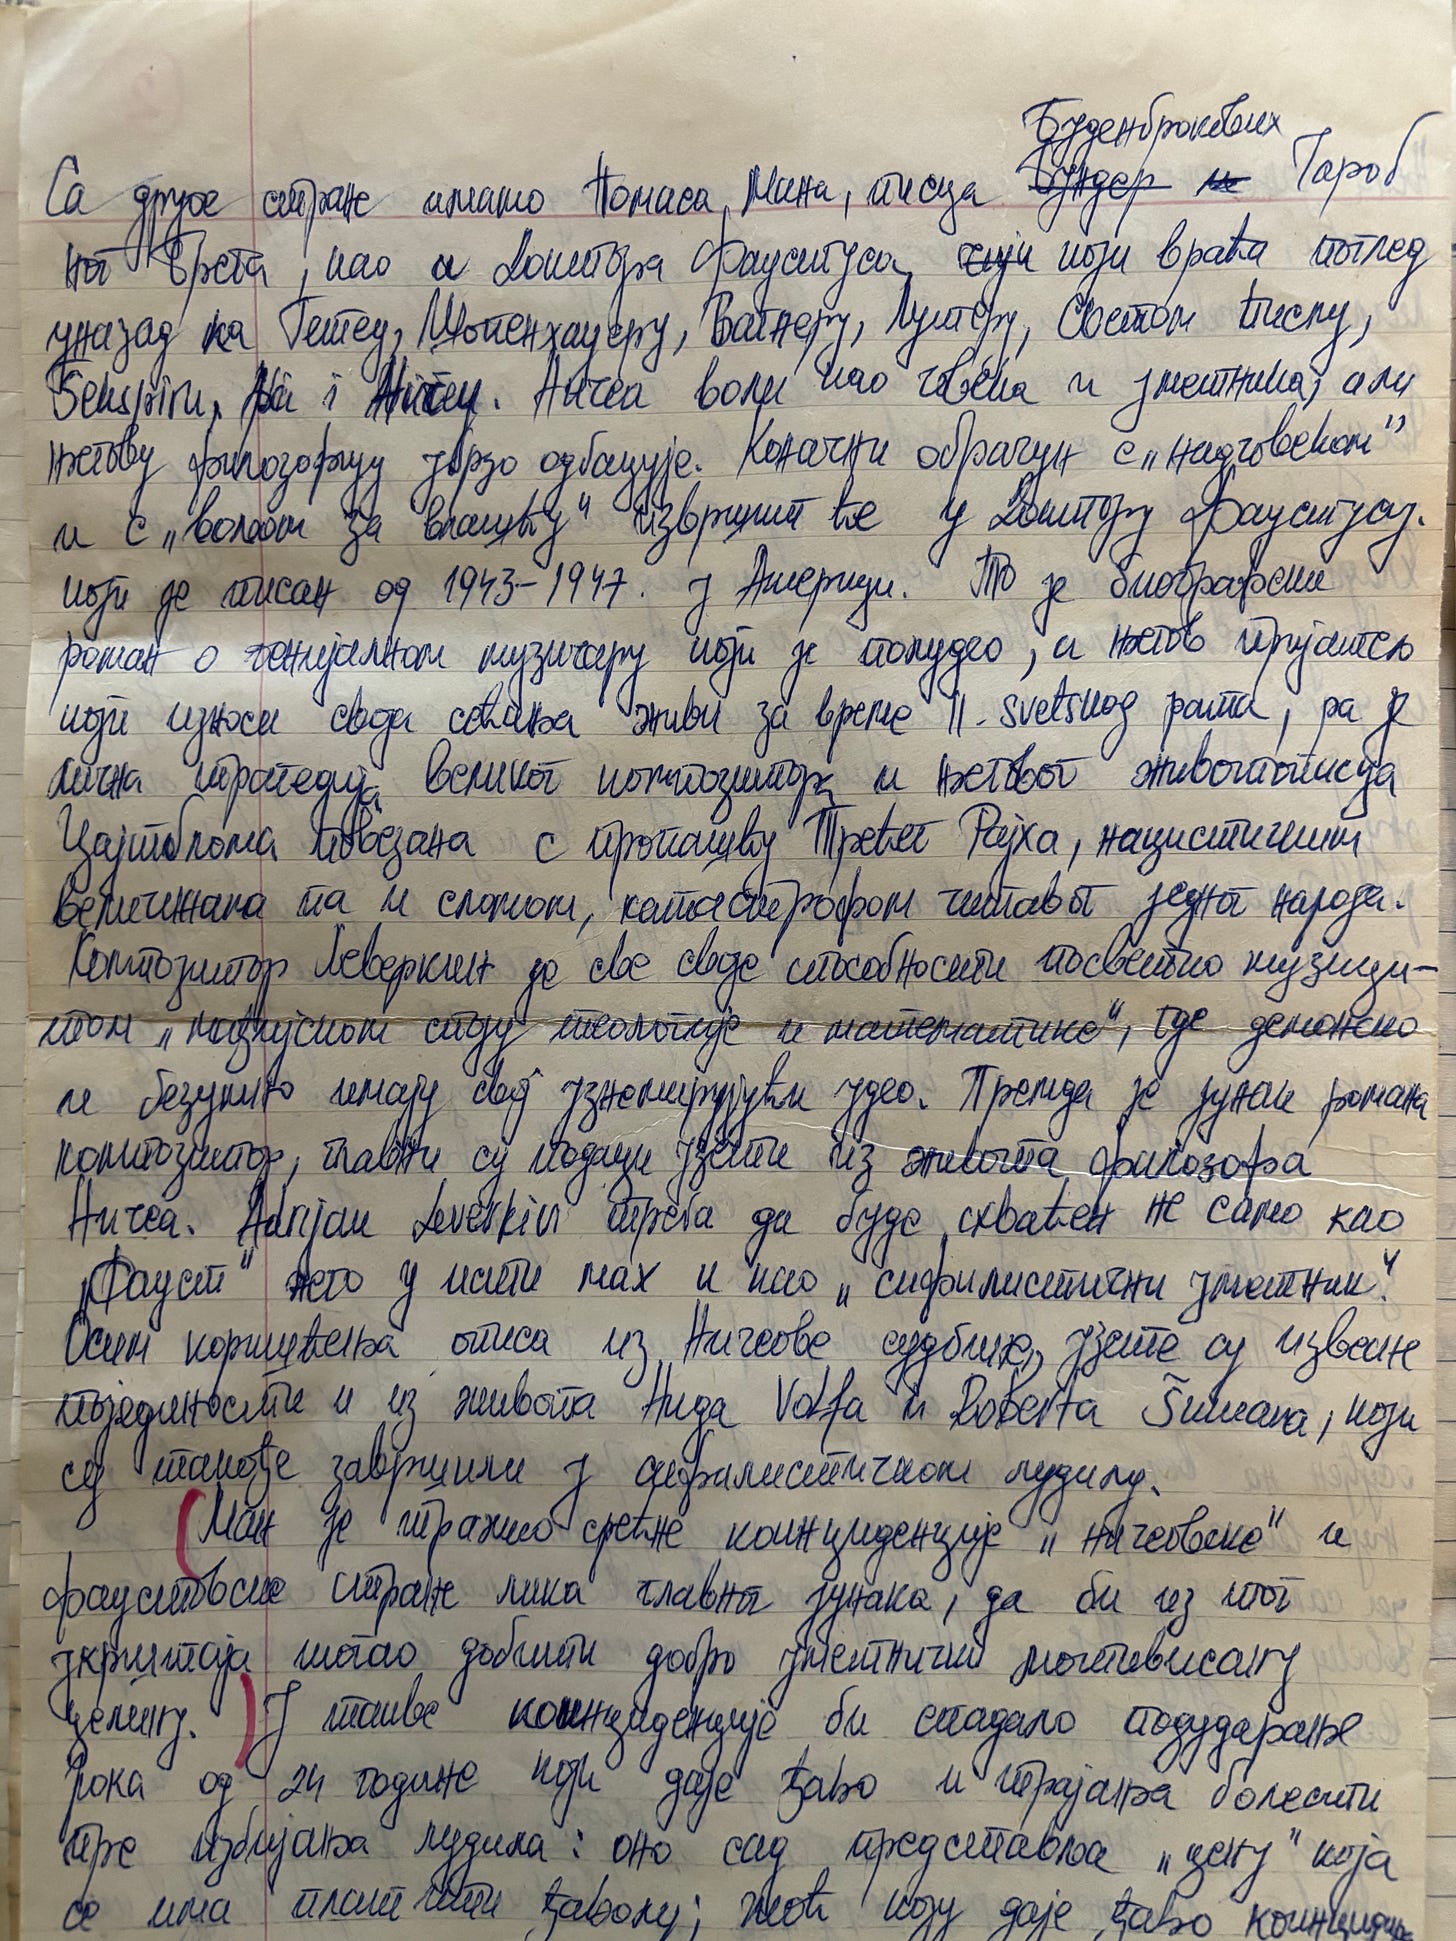 Буденброкових
Са друге стране имамо Томаса Мана, писца Бундер и Чароб
ног брега, као и Доктора Фаустуса, чији који враћа поглед
уназад ка Гетеу, Шопенхауеру, Вагнеру, Лутеру, Светом писму,
Šekspiru, i Ničeu. Ничеа воли као човека и уметника, али
његову филозофију убрзо одбацује. Коначни обрачун с „надчовеком”
и с „вољом за влашћу“ извршит ће у Доктору Фаустусу.
који је писан од 1943–1947. у Америци. То је биографски
роман о генијалном музичару који је полудео, а његов пријатељ
који износи своја сећања живи за време II. svetskog рата, pa је
лична трагедија великог композитора и његовог животописца
Цајтблома повезана с пропашћу Трећег Рајха, нацистичким
величинама па и сломом, катастрофом читавог једног народа.
Композитор Леверкин је све своје способности посветио музици –
том „магијском споју теологије и математике“, где демонско
и безумно имају свој узнемирујући удео. Премда је јунак романа
композитор, главни су подаци узети из живота филозофа
Ничеа. Adrijan Leverkin треба да буде схваћен не само као
„Фауст“ него у исти мах и као „сифилистични уметник“.
Осим коришћења описа из Ничеове судбине, узете су извесне
појединости и из живота Huga Volfa и Roberta Šumana, који
су такође завршили у сифилистичном лудилу.
(Ман је тражио срећне коинциденције „ничеовске“ и
фаустовске стране лика главног јунака, да би из тог
укрштаја могао добити добро уметнички мотивисану
целину.) У такве коинциденције би спадало подударање
рока од 24 године који даје ђаво и трајања болести
пре избијања лудила: оно сад представља „цену“ која
се има платити ђаволу; моћ коју даје ђаво